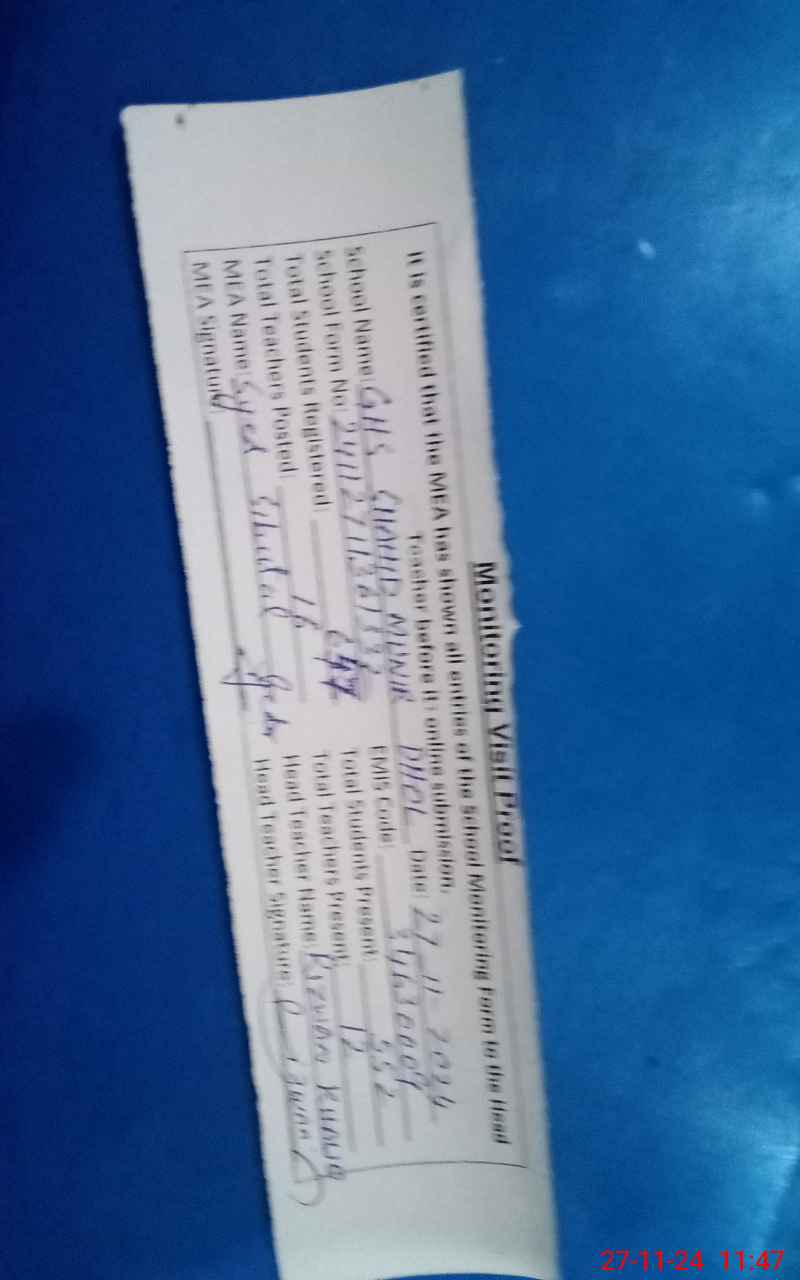 Monitoring Visit Proof
It is certified that the MEA has shown all entries of the School Monitoring Form to the Head
Teacher before its online submission.
School Name: GHS SHAHID MUNIR DHOL Date: 27-11-2024
School Form No: EMIS Code:
Total Students Registered: Total Students Present: 552
Total Teachers Posted: 16 Total Teachers Present: 12
MEA Name: Syed Head Teacher Name: Rizwan Khaliq
MEA Signature: Head Teacher Signature:
27-11-24 11:47